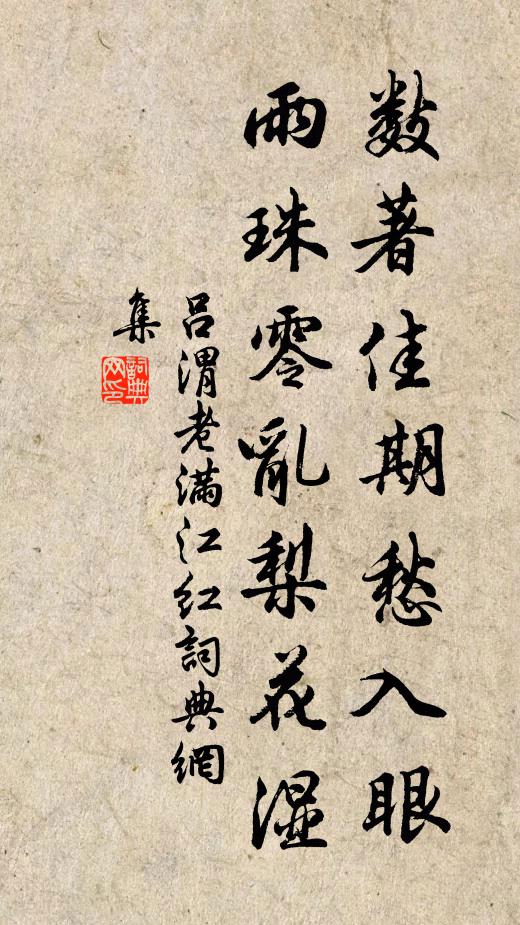 數著佳期愁入眼
雨珠零亂梨花湿
吕渭老满江红詞典網
集
詞典网印